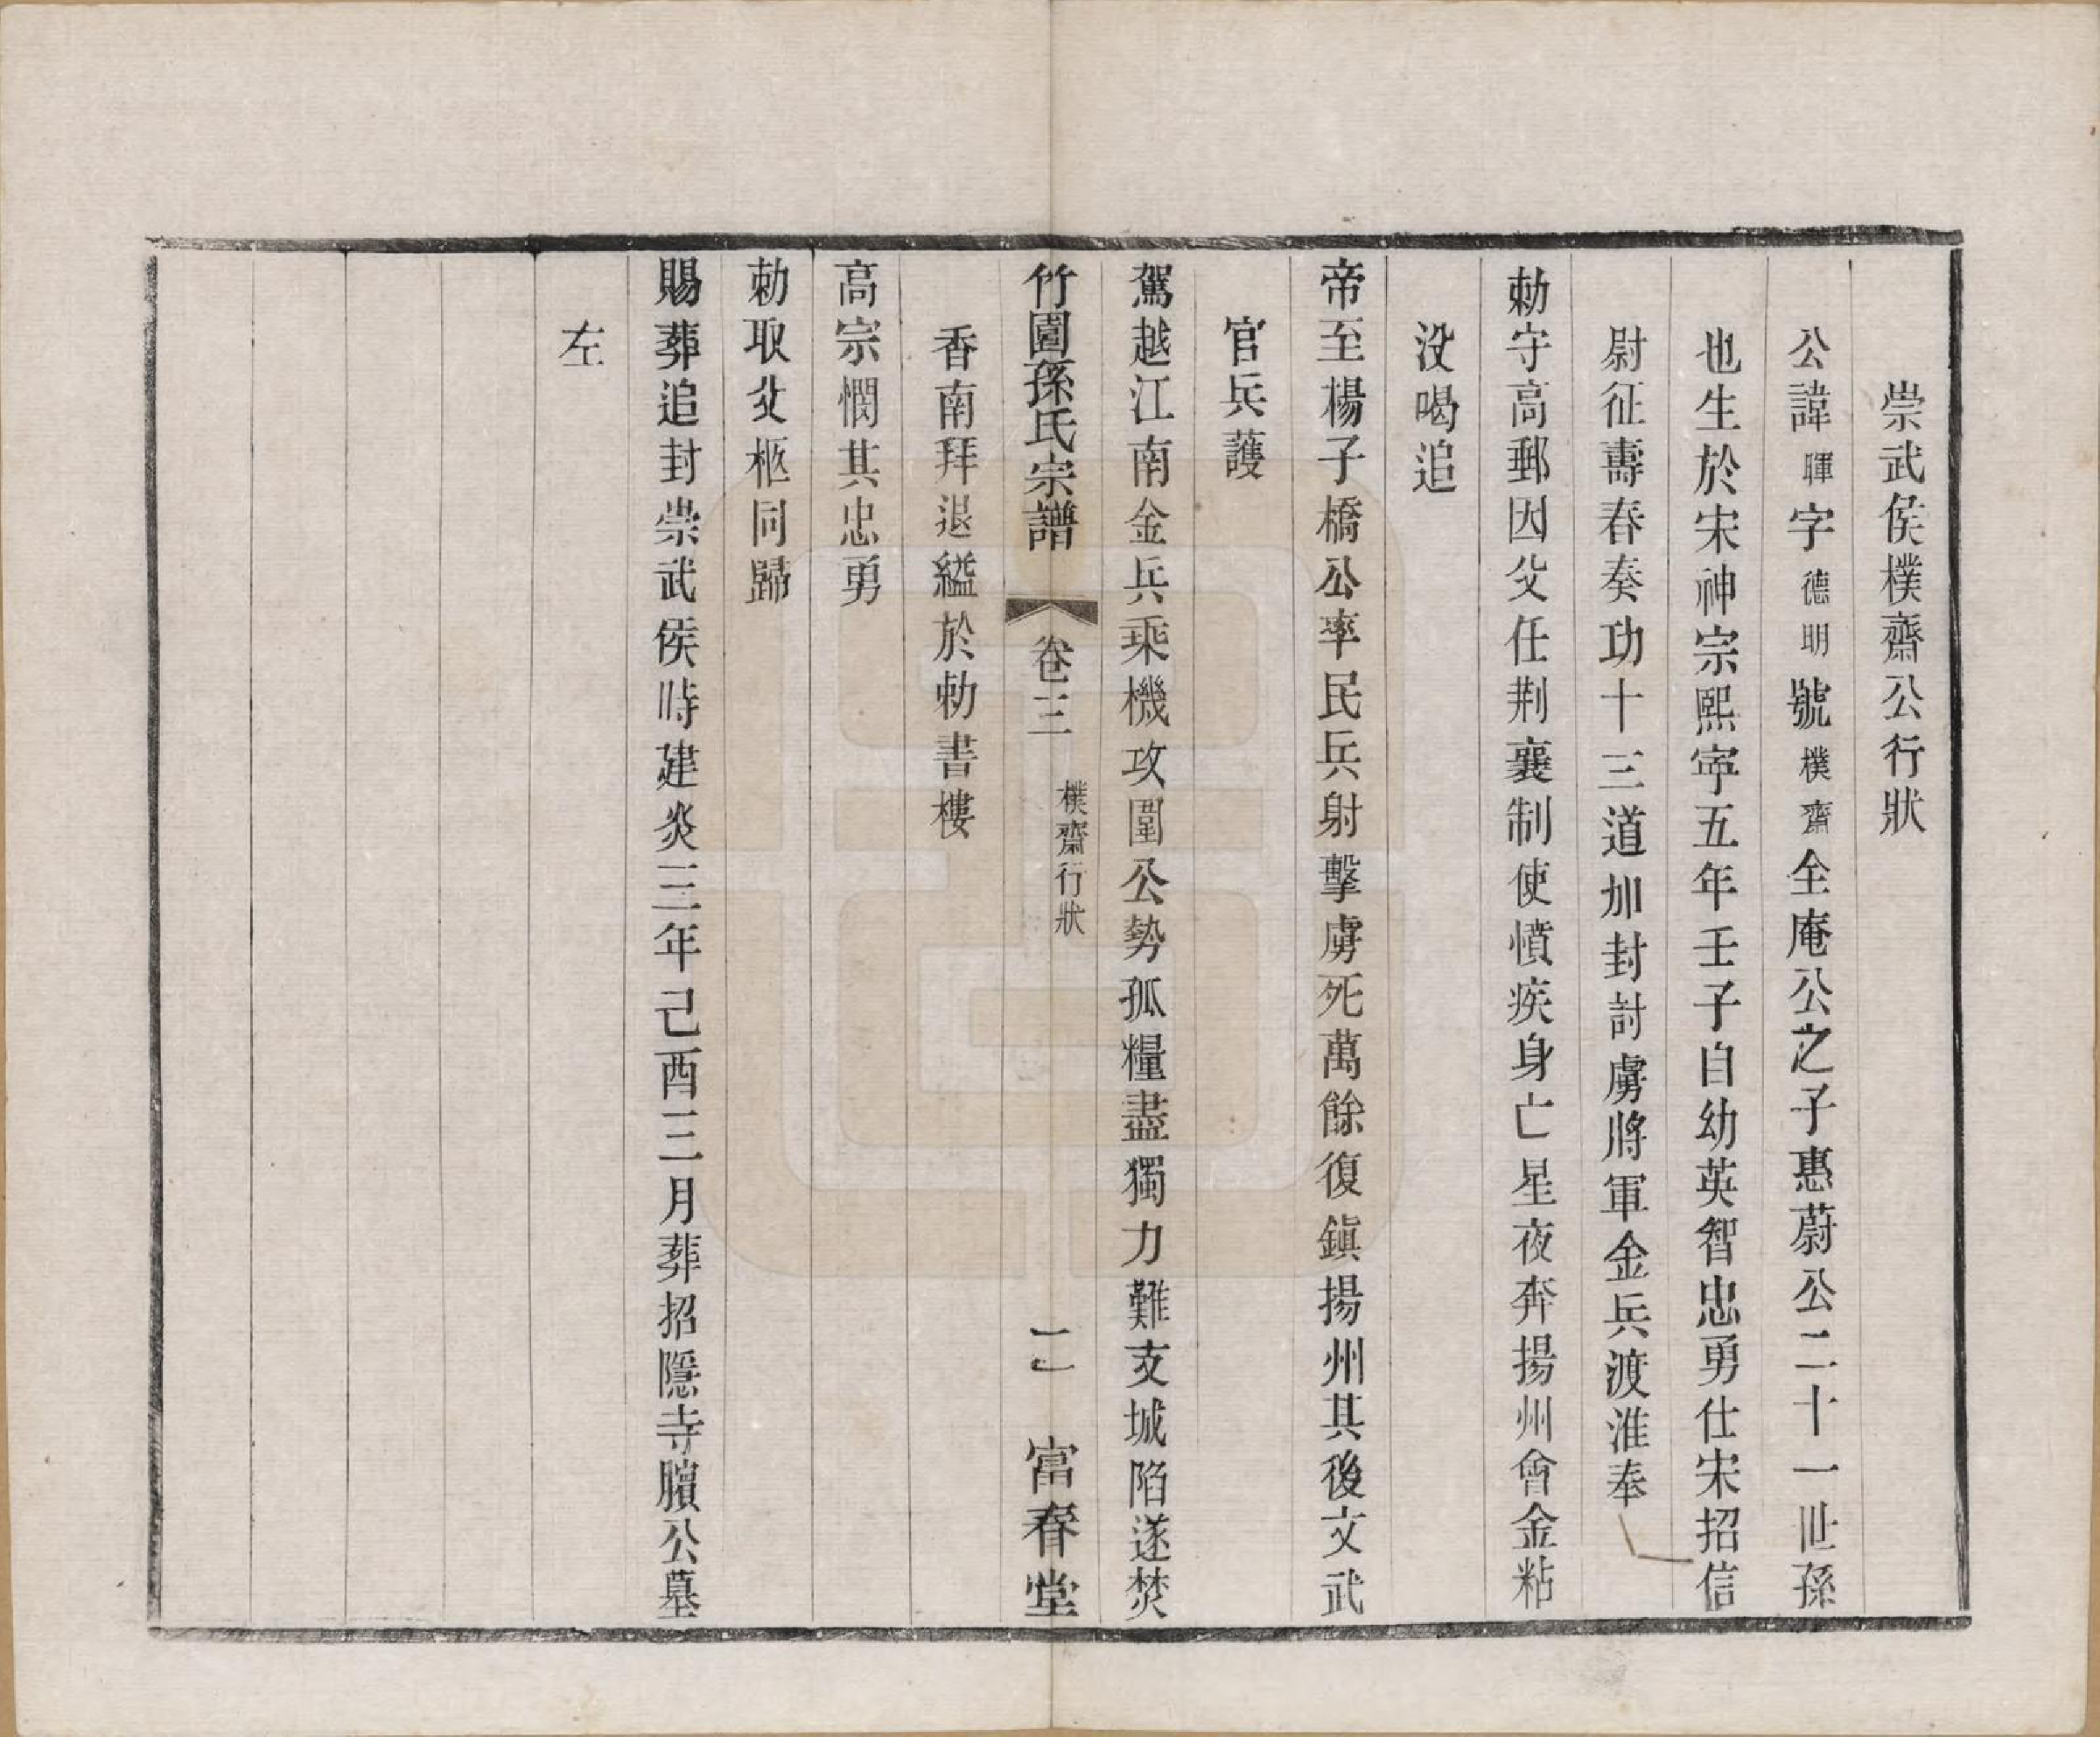 崇武侯樸齋公行狀
公諱暉字德明號樸齋全庵公之子惠蔚公二十一世孫
也生於宋神宗熙寧五年壬子自幼英智忠勇仕宋招信
尉征壽春奏功十三道加封討虜將軍金兵渡淮奉
勅守高郵因父任荆襄制使憤疾身亡星夜奔揚州會金粘
没喝追
帝至楊子橋公率民兵射擊虜死萬餘復鎮揚州其後文武
官兵護
駕越江南金兵乘機攻圍公勢孤糧盡獨力難支城陷遂焚
竹園孫氏宗譜 卷三 樸齋行狀 二 富春堂
香南拜退縊於勅書樓
高宗憫其忠勇
勅取父柩同歸
賜葬追封崇武侯時建炎三年己酉三月葬招隱寺臏公墓
左